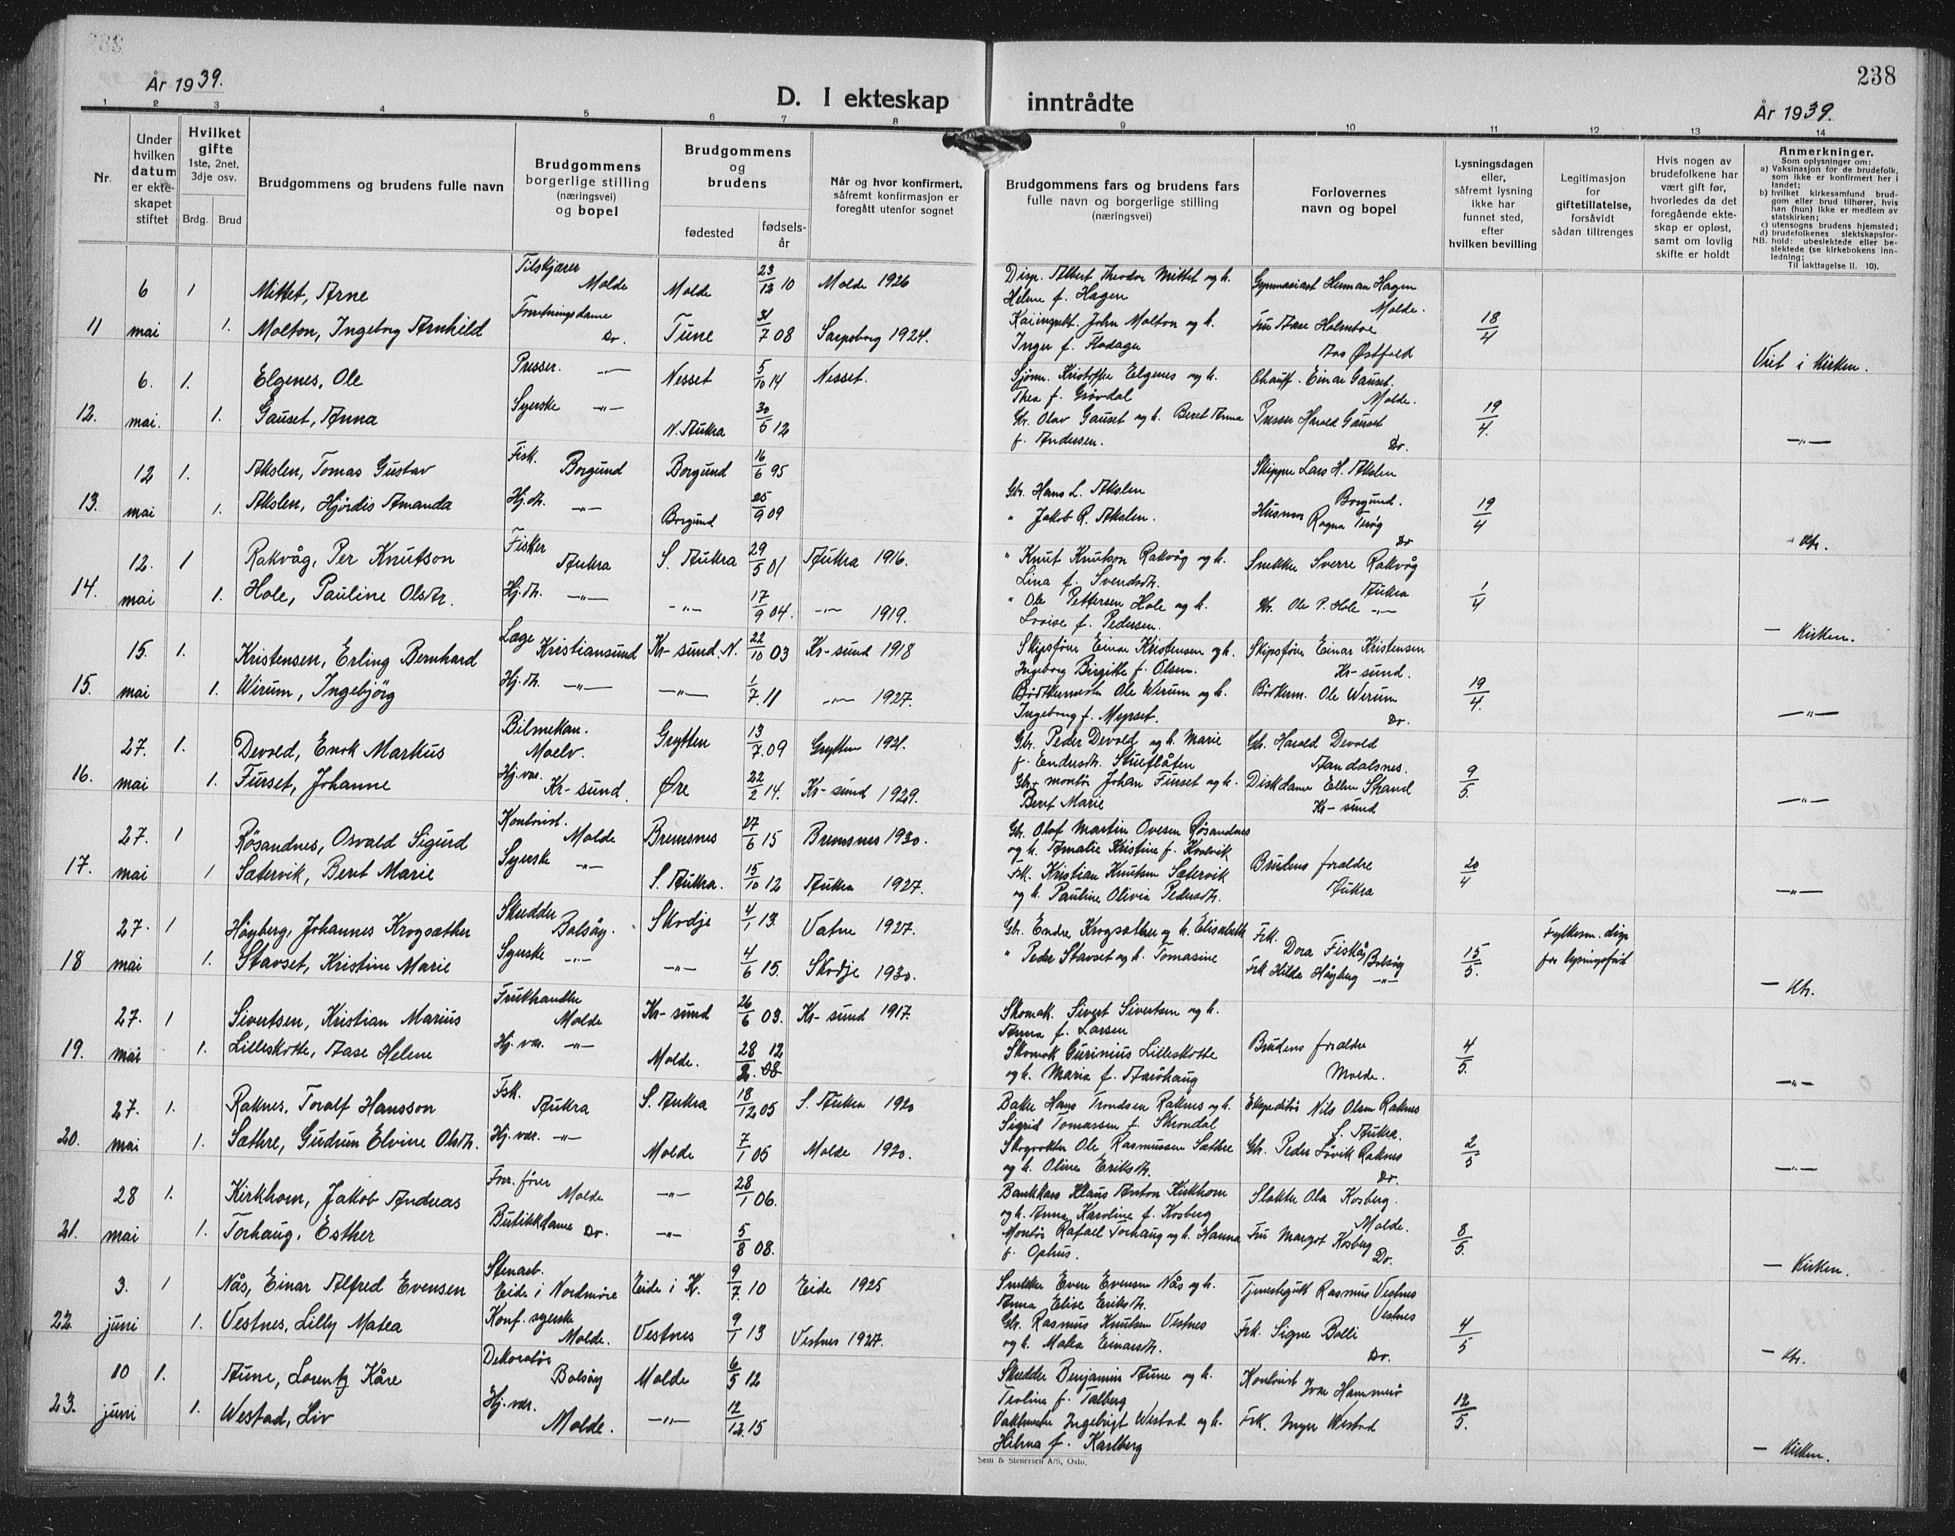 238
År 1939.
D. I ekteskap inntrådte
År 1939.
1 2 3 4 5 6 7 8 9 10 11 12 13 14
Nr.
Under hvilken datum er ekteskapet stiftet
Hvilket gifte
1ste, 2net, 3dje osv.
Brdg. Brud
Brudgommens og brudens fulle navn
Brudgommens borgerlige stilling (næringsvei) og bopel
Brudgommens og brudens
fødested
fødselsår
Når og hvor konfirmert, såfremt konfirmasjon er foregått utenfor sognet
Brudgommens fars og brudens fars fulle navn og borgerlige stilling (næringsvei)
Forlovernes navn og bopel
Lysningsdagen eller, såfremt lysning ikke har funnet sted, efter hvilken bevilling
Legitimasjon for giftetillatelse, forsåvidt sådan tiltrenges
Hvis nogen av brudefolkene har vært gift før, hvorledes da det foregående ekteskap er opløst, samt om lovlig skifte er holdt
Anmerkninger.
Som oplysninger om:
a) Vaksinasjon for de brudefolk, som ikke er konfirmert her i landet;
b) hvilket kirkesamfund brudgom eller brud tilhører, hvis han (hun) ikke er medlem av statskirken;
c) utensogns brudens hjemsted;
d) brudefolkenes slektskapsforhold: ubeslektede eller beslektede (se kirkebokens innledning;
NB. Til iakttagelse II. 10).
6 1 Mittet, Arne Tilskjærer Molde Molde 23/12 10 Molde 1926 Disp. Albert Theodor Mittet og h. Helene f. Hagen Gymnasiast Herman Hagen Molde.
11 mai 1. Molton, Ingeborg Arnhild Forretningsdame Do. Tune 31/7 08 Sarpsborg 1924. John Molton og h. Inger f. Flodager Fru Aase Holmboe Ås Østfold 18/4 Viet i kirken.
6. 1. Elgenes, Ole Presser. —„— Nesset 5/10 14 Nesset. Sjøm. Kristoffer Elgenes og h. Thea f. Grøvdal Chauff. Einar Gauset. Molde.
12. mai. 1. Gauset, Anna Syerske —„— N. Aukra 30/5 12 Gbr. Olav Gauset og h. Beret Anna f. Andersen. Presser Harald Gauset Do. 19/4. —„—
12 1. Akslen, Tomas Gustav Fisk. Borgund Borgund 16/6 95 Gbr. Hans L. Akslen Skipper Lars H. Akslen Borgund.
13. mai 1. Akslen, Hjørdis Amanda Hj.dt. —„— Borgund 25/9 09 „ Jakob R. Akslen. Husmor Ragna Terøg Do 19/4 Kfr.
12. 1 Rakvåg, Per Knutson Fisker Aukra S. Aukra 29/5 01 Aukra 1916. „ Knut Knutson Rakvåg og h. Lina f. Svendsdt. Snekker Sverre Rakvåg Aukra
14. mai 1. Hole, Pauline Olsdtr. Hj.dt. —„— —„— 17/9 04. —„— 1919. „ Ole Pettersen Hole og h. Lovise f. Pedersen. Gbr. Ole P. Hole —„— 1/4 — Kirken.
15. 1. Kristensen, Erling Bernhard Læge Kristiansund Kr-sund. N. 22/10 03 Kr-sund 1918 Skipsfører Einar Kristensen og h. Ingeborg Birgitte f. Olsen. Skipsfører Einar Kristensen Kr-sund.
15. mai 1. Wirum, Ingebjørg Hj.dt. —„— —„— 1/7. 11 —„— 1927. Ole Wirum og h. Ingeborg f. Myrset. Ole Wirum Do. 19/4. —„—
27. 1. Devold, Enok Markus Bilmekan. Moelv. Grytten 13/7. 09 Grytten 1921. Gbr. Peder Devold og h. Marie f. Endersdt. Stueflåten Gbr. Harald Devold Åndalsnes.
16. mai 1. Furset, Johanne Hj. vær. Kr-sund. Øre 22/2 14. Kr-sund 1929. Gbr.-montør Johan Furset og h. Beret Marie Diskdame Ellen Strand Kr-sund 9/5. —„—
27. 1 Røsandnes, Osvald Sigurd Kontorist. Molde Bremsnes 27/6 15 Bremsnes 1930. Gbr. Olaf Martin Ovesen Røsandnes og h. Amalie Kristine f. Kvalvik
17. mai 1 Sætervik, Beret Marie Syerske —„— S. Aukra. 15/10 12 Aukra 1927. Fsk. Kristian Knutsen Sætervik og h. Pauline Olivia Pedersdt. Brudens foreldre Aukra 20/4 —„—
27. 1 Høyberg, Johannes Krogsæther Skredder Bolsøy. Skodje 4/1 13. Vatne 1927. Gbr. Endre Krogsæther og h. Elisabeth Frk. Dora Fiskå Bolsøy Fylkesm. disp.
18 mai 1. Stavset, Kristine Marie Syerske —„— —„— 4/6 15. Skodje 1930. „ Peder Stavset og h. Tomasine Frk Hilda Høyberg —„— 15/5. for lysningsfrist — Kfr.
27. 1 Sivertsen, Kristian Marius Frukthandler Molde Kr-sund 26/6 03. Kr-sund 1917. Skomak. Sivert Sivertsen og h. Anna f. Larsen
19. mai 1. Lilleskotte, Aase Helene Hj. vær. —„— Molde. 28/2. 12 08 Skomak Gurinius Lilleskotte og h. Maria f. Aarøhaug Brudens foreldre Molde. 4/5. —„—
27. 1. Raknes, Toralf Hansson Fsk. Aukra S. Aukra 18/12 05 S. Aukra 1920 Hans Trondsen Raknes og h. Sigrid Tomassen f. Skrondal Ekspeditør Nils Olsen Raknes S. Aukra.
20. mai 1. Sæthre, Gudrun Elvine Olsdt. Hj. vær. —„— Molde 7/1 05 Molde 1920. Skogvokter Ole Rasmussen Sæthre og h. Oline Eriksdt. Gbr. Peder Løvik Raknes Do. 2/5 —„—
28 1. Kirkhorn, Jakob Andreas Forr. fører Molde —„— 28/1 06. Bankkass Klaus Anton Kirkhorn og h. Anna Karoline f. Kosberg Slakter Ola Kosberg. Molde.
21. mai 1. Torhaug, Esther Butikkdame Do. —„— 5/8 08. Montør Rafael Torhaug og h. Hanna f. Ophus. Fru Margot Kosberg Do. 8/5. — Kirken.
3. 1 Nås, Einar Alfred Evensen Stenarb. Eide i Nordmøre Eide i K. 9/7. 10 Eide 1925 Snekker Even Evensen Nås og h. Anna Elise Eriksdt. Tjenestegutt Rasmus Vestnes Vestnes
22. juni 1. Vestnes, Lilly Matea Konf. syerske Molde. Vestnes 9/1 13 Vestnes 1927. Gbr. Rasmus Knutsen Vestnes og h. Matea Einarsdt. Frk. Signe Bolli Do. 4/5 — Kfr.
10 1. Aune, Lorentz Kåre Dekoratør Bolsøy Molde 6/5 12 Skredder Benjamin Aune og h. Teoline f. Talberg Kontorist Ivar Hammerø
23. juni 1. Westad, Liv Hj. vær. Molde. —„— 12/12. 15 Ingebrigt Westad og h. Hilma f. Karlberg Frk. Inger Westad 12/5. — Kirken.
Sem & Stenersen A/S, Oslo.